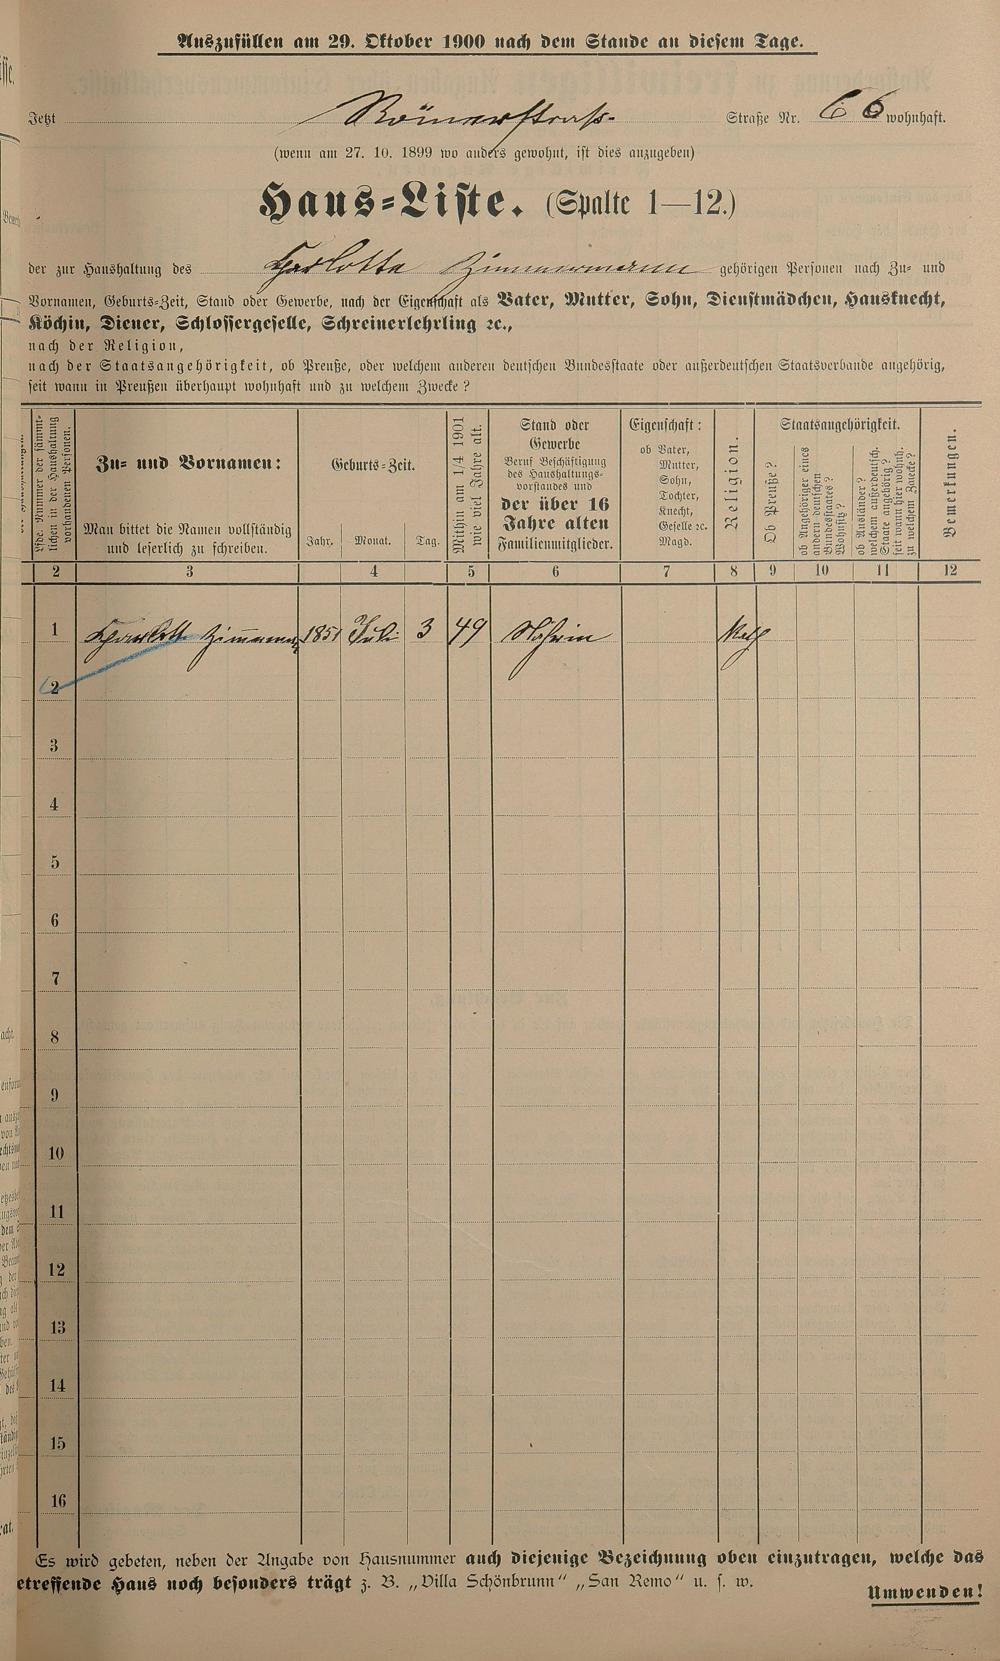 Auszufüllen am 29. Oktober 1900 nach dem Stande an diesem Tage.
Jetzt Römerstraß. Straße Nr. 66 wohnhaft.
(wenn am 27. 10. 1899 wo anders gewohnt, ist dies anzugeben)
Haus=Liste. (Spalte 1—12.)
der zur Haushaltung des Zimmermann gehörigen Personen nach Zu- und
Vornamen, Geburts-Zeit, Stand oder Gewerbe, nach der Eigenschaft als Vater, Mutter, Sohn, Dienstmädchen, Hausknecht,
Köchin, Diener, Schlossergeselle, Schreinerlehrling ꝛc.,
nach der Religion,
nach der Staatsangehörigkeit, ob Preuße, oder welchem anderen deutschen Bundesstaate oder außerdeutschen Staatsverbande angehörig,
seit wann in Preußen überhaupt wohnhaft und zu welchem Zwecke?
Lfde. Nummer der sämmt-
lichen in der Haushaltung
vorhandenen Personen.
Zu- und Vornamen:
Man bittet die Namen vollständig
und leserlich zu schreiben.
Geburts-Zeit.
Jahr. Monat. Tag.
Mithin am 1/4 1901
wie viel Jahre alt.
Stand oder
Gewerbe
Beruf Beschäftigung
des Haushaltungs-
vorstandes und
der über 16
Jahre alten
Familienmitglieder.
Eigenschaft:
ob Vater,
Mutter,
Sohn,
Tochter,
Knecht,
Geselle ꝛc.
Magd.
Religion.
Staatsangehörigkeit.
Ob Preuße?
ob Angehöriger eines
andern deutschen
Bundesstaates?
Wohnsitz?
ob Ausländer?
welchem außerdeutsch.
Staate angehörig?
seit wann hier wohnh.
zu welchem Zwecke?
Bemerkungen.
2 3 4 5 6 7 8 9 10 11 12
1 Zimmerman 1851 Juli 3 49
2
3
4
5
6
7
8
9
10
11
12
13
14
15
16
Es wird gebeten, neben der Angabe von Hausnummer auch diejenige Bezeichnung oben einzutragen, welche das
etreffende Haus noch besonders trägt z. B. „Villa Schönbrunn" „San Remo" u. s. w.
Umwenden!